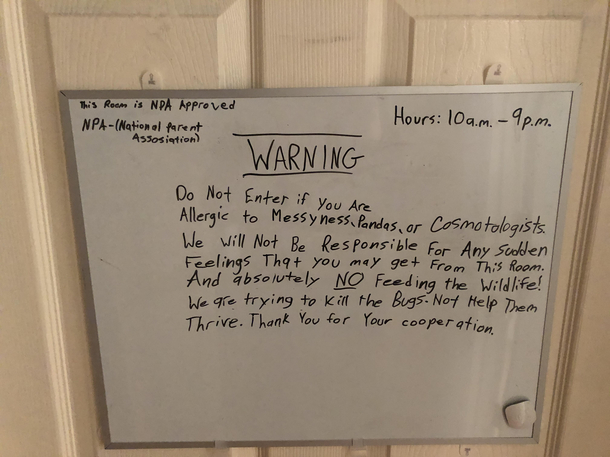 This Room is NPA Approved
NPA-(National parent
Assosiation)
Hours: 10a.m. - 9p.m.
WARNING
Do Not Enter if You Are
Allergic to Messyness, Pandas, or Cosmotologists.
We Will Not Be Responsible For Any Sudden
Feelings That you may get From This Room.
And absolutely NO Feeding the Wildlife!
We are trying to Kill the Bugs-Not Help Them
Thrive. Thank You for Your cooperation.